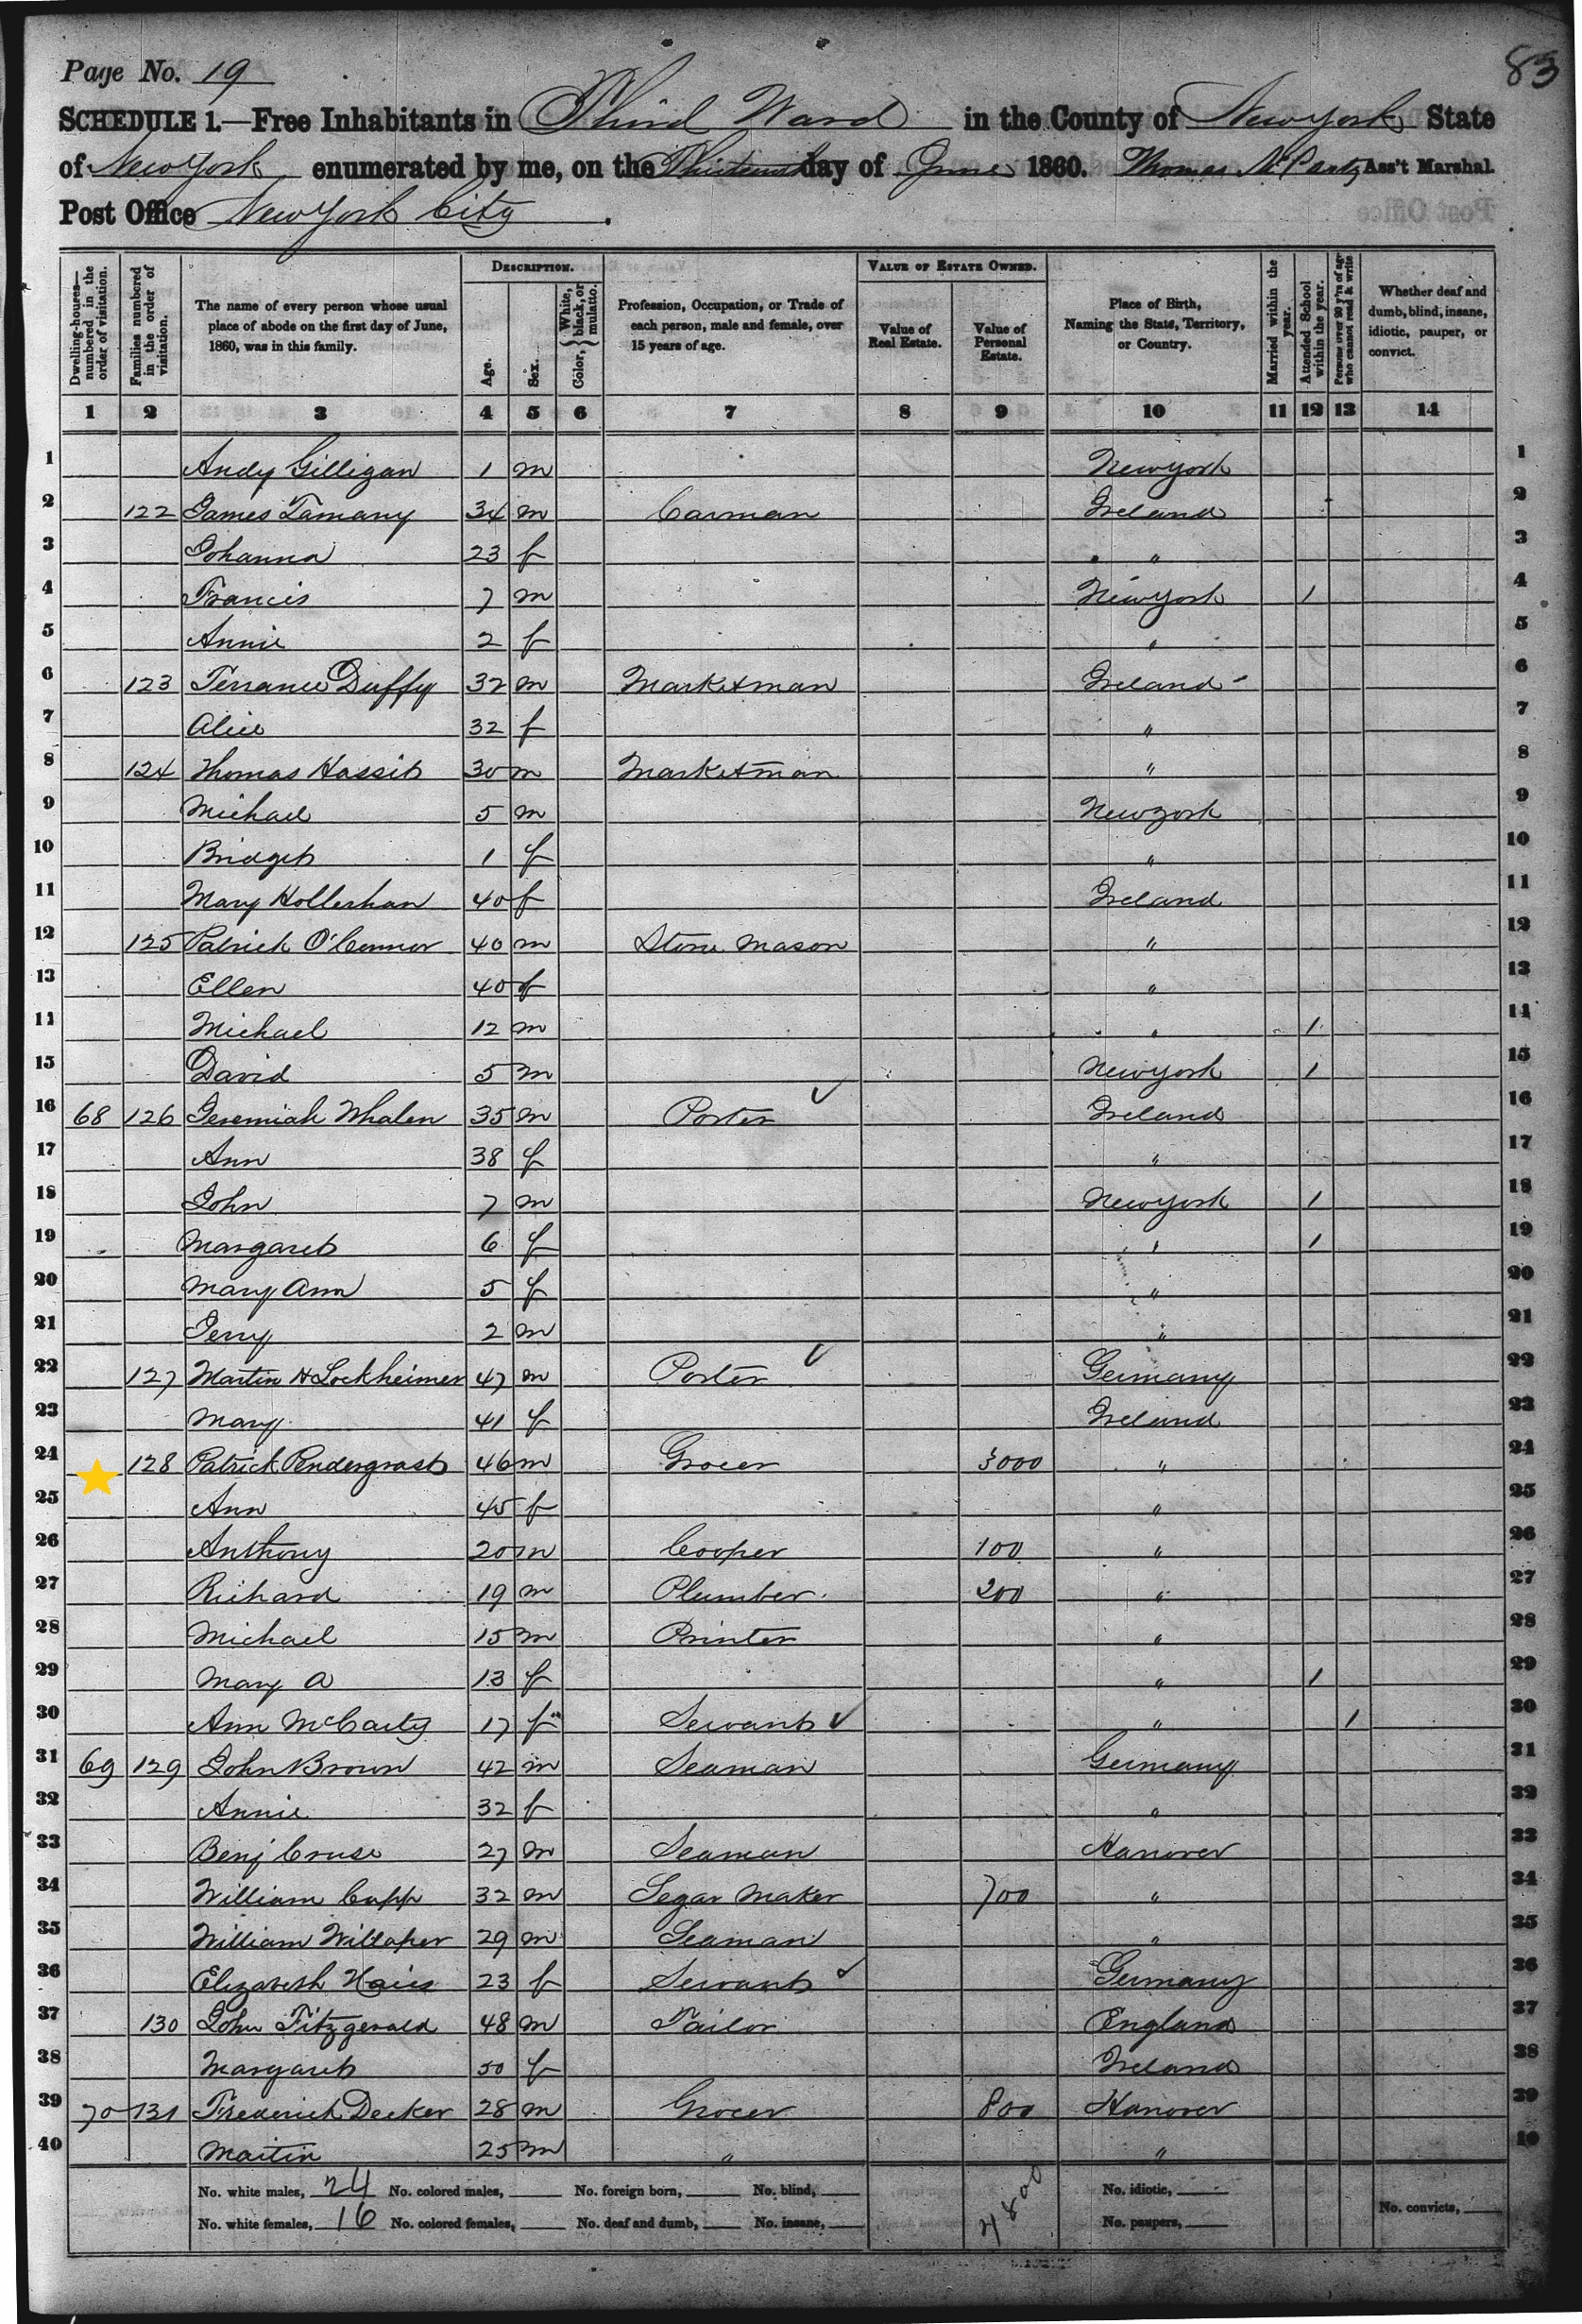 83
Page No. 19
SCHEDULE 1.—Free Inhabitants in Third Ward in the County of New York State
of New York enumerated by me, on the Thirteenth day of June 1860. Thomas Ass't Marshal.
Post Office New York City.
DESCRIPTION. VALUE OF ESTATE OWNED.
Dwelling-houses—numbered in the order of visitation. Families numbered in the order of visitation. The name of every person whose usual place of abode on the first day of June, 1860, was in this family. Age. Sex. Color, {White, black, or mulatto. Profession, Occupation, or Trade of each person, male and female, over 15 years of age. Value of Real Estate. Value of Personal Estate. Place of Birth, Naming the State, Territory, or Country. Married within the year. Attended School within the year. Persons over 20 y'rs of age who cannot read & write Whether deaf and dumb, blind, insane, idiotic, pauper, or convict.
1 2 3 4 5 6 7 8 9 10 11 12 13 14
1 Andy Gilligan 1 m New York 1
2 122 James Tamany 34 m Carman Ireland 2
3 Johanna 23 f " 3
4 Francis 7 m New York 1 4
5 Annie 2 f " 5
6 123 Terrance Duffy 32 m Marketman Ireland 6
7 Alice 32 f " 7
8 124 Thomas Hassit 30 m Marketman " 8
9 Michael 5 m New York 9
10 Bridget 1 f " 10
11 Mary Hollerhan 40 f Ireland 11
12 125 Patrick O'Connor 40 m Stone Mason " 12
13 Ellen 40 f " 13
14 Michael 12 m " 1 14
15 David 5 m New York 1 15
16 68 126 Jeremiah Whalen 35 m Porter Ireland 16
17 Ann 38 f " 17
18 John 7 m New York 1 18
19 Margaret 6 f " 1 19
20 Mary Ann 5 f " 20
21 Jerry 2 m " 21
22 127 Martin H Lockheimer 47 m Porter Germany 22
23 Mary 41 f Ireland 23
24 128 Patrick Pendergrast 46 m Grocer 3000 " 24
25 Ann 45 f " 25
26 Anthony 20 m Cooper 100 " 26
27 Richard 19 m Plumber 200 " 27
28 Michael 15 m Printer " 28
29 Mary A 13 f " 1 29
30 Ann McCarty 17 f Servant " 1 30
31 69 129 John Brown 42 m Seaman Germany 31
32 Annie 32 f " 32
33 Benj Cruse 27 m Seaman Hanover 33
34 William Capp 32 m Segar Maker 700 " 34
35 William Willaper 29 m Seaman " 35
36 Elizabeth 23 f Servant Germany 36
37 130 John Fitzgerald 48 m Tailor England 37
38 Margaret 50 f Ireland 38
39 70 131 Frederick Decker 28 m Grocer 800 Hanover 39
40 Martin 25 m " " 40
No. white males, 24 No. colored males, No. foreign born, No. blind, 4800 No. idiotic, No. convicts,
No. white females, 16 No. colored females, No. deaf and dumb, No. insane, No. paupers,